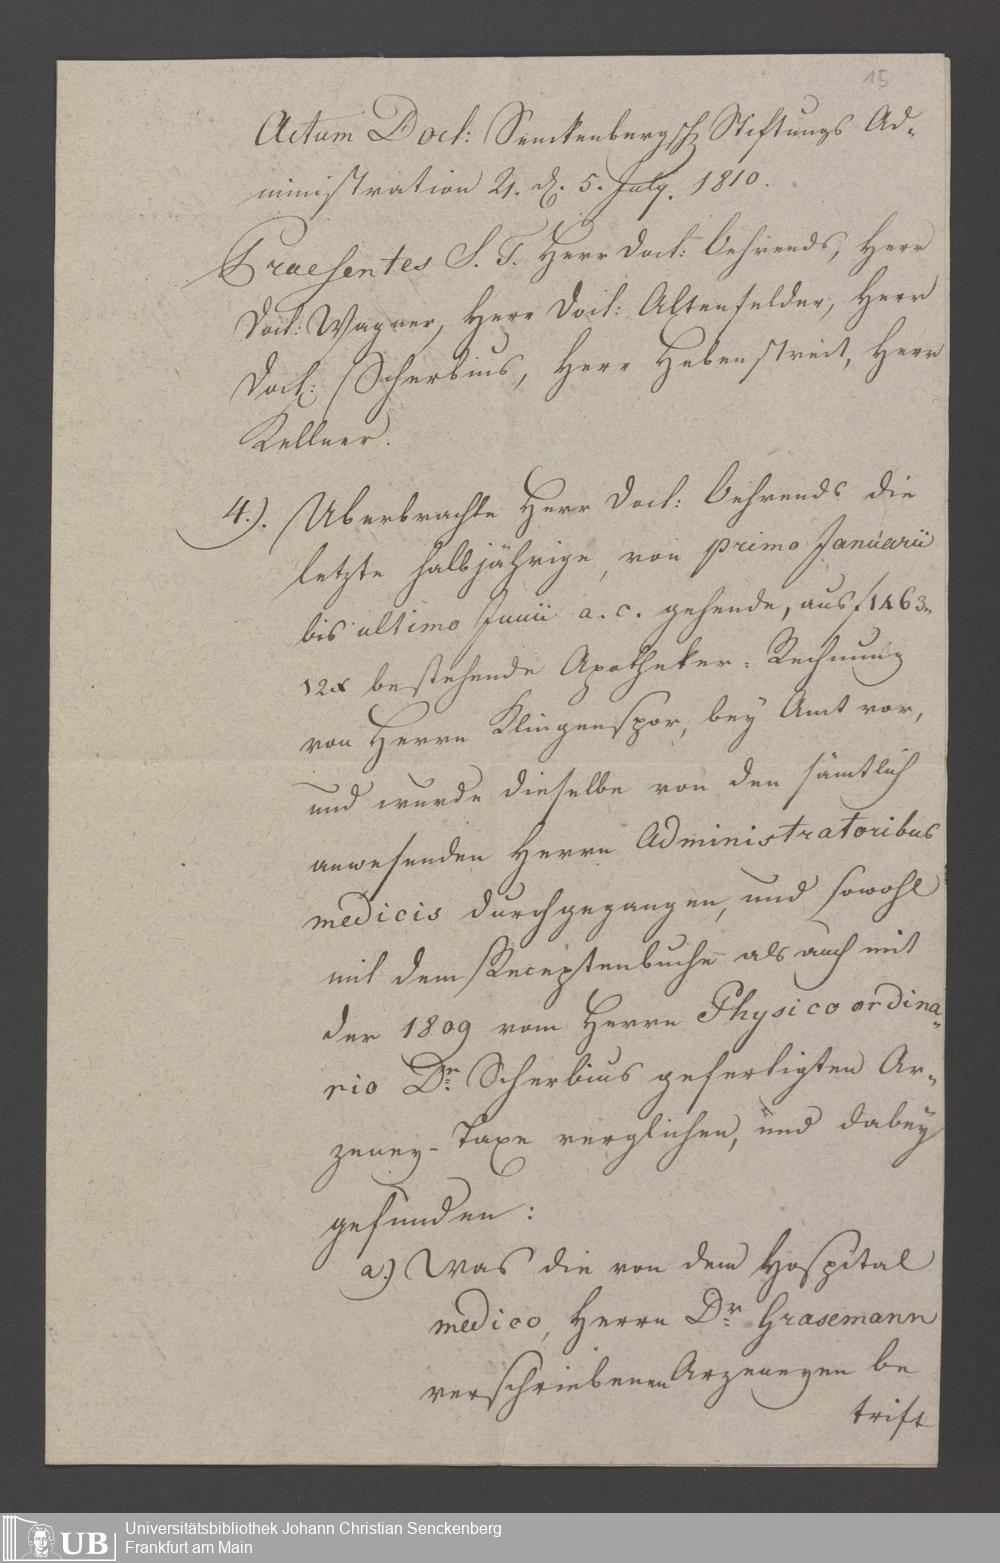 15
Actum Doct: Senckenbergsch Stiftungs Ad-
ministration 4. d. 5. July. 1810.
Praesentes S. T. Herr Doct: Behrends, Herr
Doct: Wagner, Herr Doct: Altenfelder, Herr
Doct: Scherbius, Herr Hebenstreit, Herr
Kellner.
4.). Uberbrachte Herr Doct: Behrends die
letzte halbjährige, von primo Januarii
bis ultimo Junii a. c. gehende, aus f 1463.
12x bestehende Apotheker-Rechnung
von Herrn Klingenspor, bey Amt vor,
und wurde dieselbe von den sämtlich
anwesenden Herrn Administratoribus
medicis durchgegangen, und sowohl
mit dem Receptenbuche als auch mit
der 1809 vom Herrn Physico ordina-
rio Dr. Scherbius gefertigten Ar-
zeney-Taxe verglichen, und dabey
gefunden:
a.) Was die von dem Hospital
medico, Herrn Dr. Grasemann
verschriebenen Arzeneyen be
trift
UB Universitätsbibliothek Johann Christian Senckenberg
Frankfurt am Main